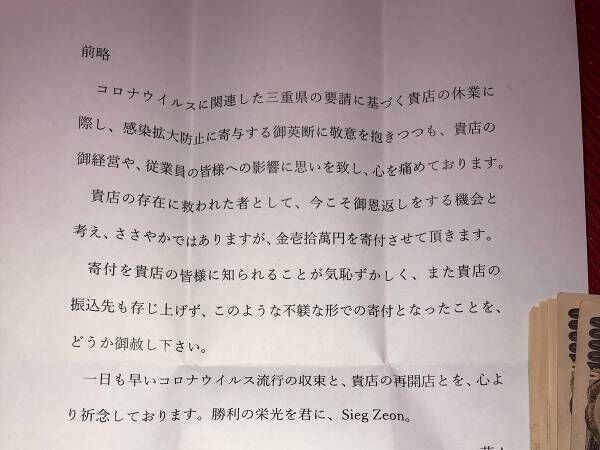 前略
コロナウイルスに関連した三重県の要請に基づく貴店の休業に
際し、感染拡大防止に寄与する御英断に敬意を抱きつつも、貴店の
御経営や、従業員の皆様への影響に思いを致し、心を痛めております。
貴店の存在に救われた者として、今こそ御恩返しをする機会と
考え、ささやかではありますが、金壱拾萬円を寄付させて頂きます。
寄付を貴店の皆様に知られることが気恥ずかしく、また貴店の
振込先も存じ上げず、このような不躾な形での寄付となったことを、
どうか御赦し下さい。
一日も早いコロナウイルス流行の収束と、貴店の再開店とを、心よ
り祈念しております。勝利の栄光を君に、Sieg Zeon。
10000
10000